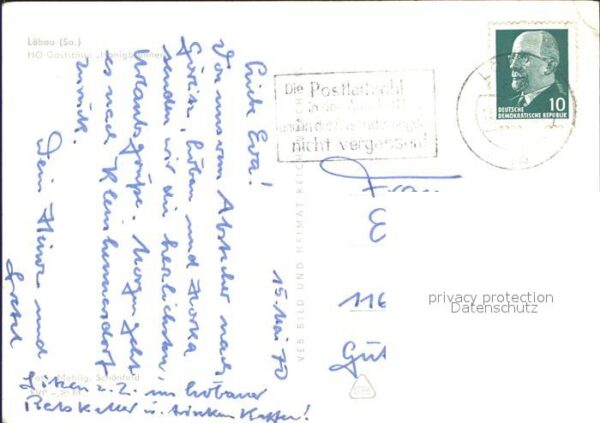 Löbau (Sa.)
HO Gaststätte „Honigbrunnen"
15. Mai 70
Liebe Eva!
Von uns vom Abstecher nach
Görlitz, Löbau und
senden wir die herzlichsten
Urlaubsgrüße. Morgen geht
es nach Kleinhennersdorf
zurück.
Dein Heinz und
Gretel
Sitzen z. Z. im Löbauer
Ratskeller u. trinken Kaffee!
VEB BILD UND HEIMAT REICHENBACH
Schönfeld
Die Postleitzahl
nicht vergessen!
10
DEUTSCHE
DEMOKRATISCHE REPUBLIK
Frau
E
116
Gut
privacy protection
Datenschutz